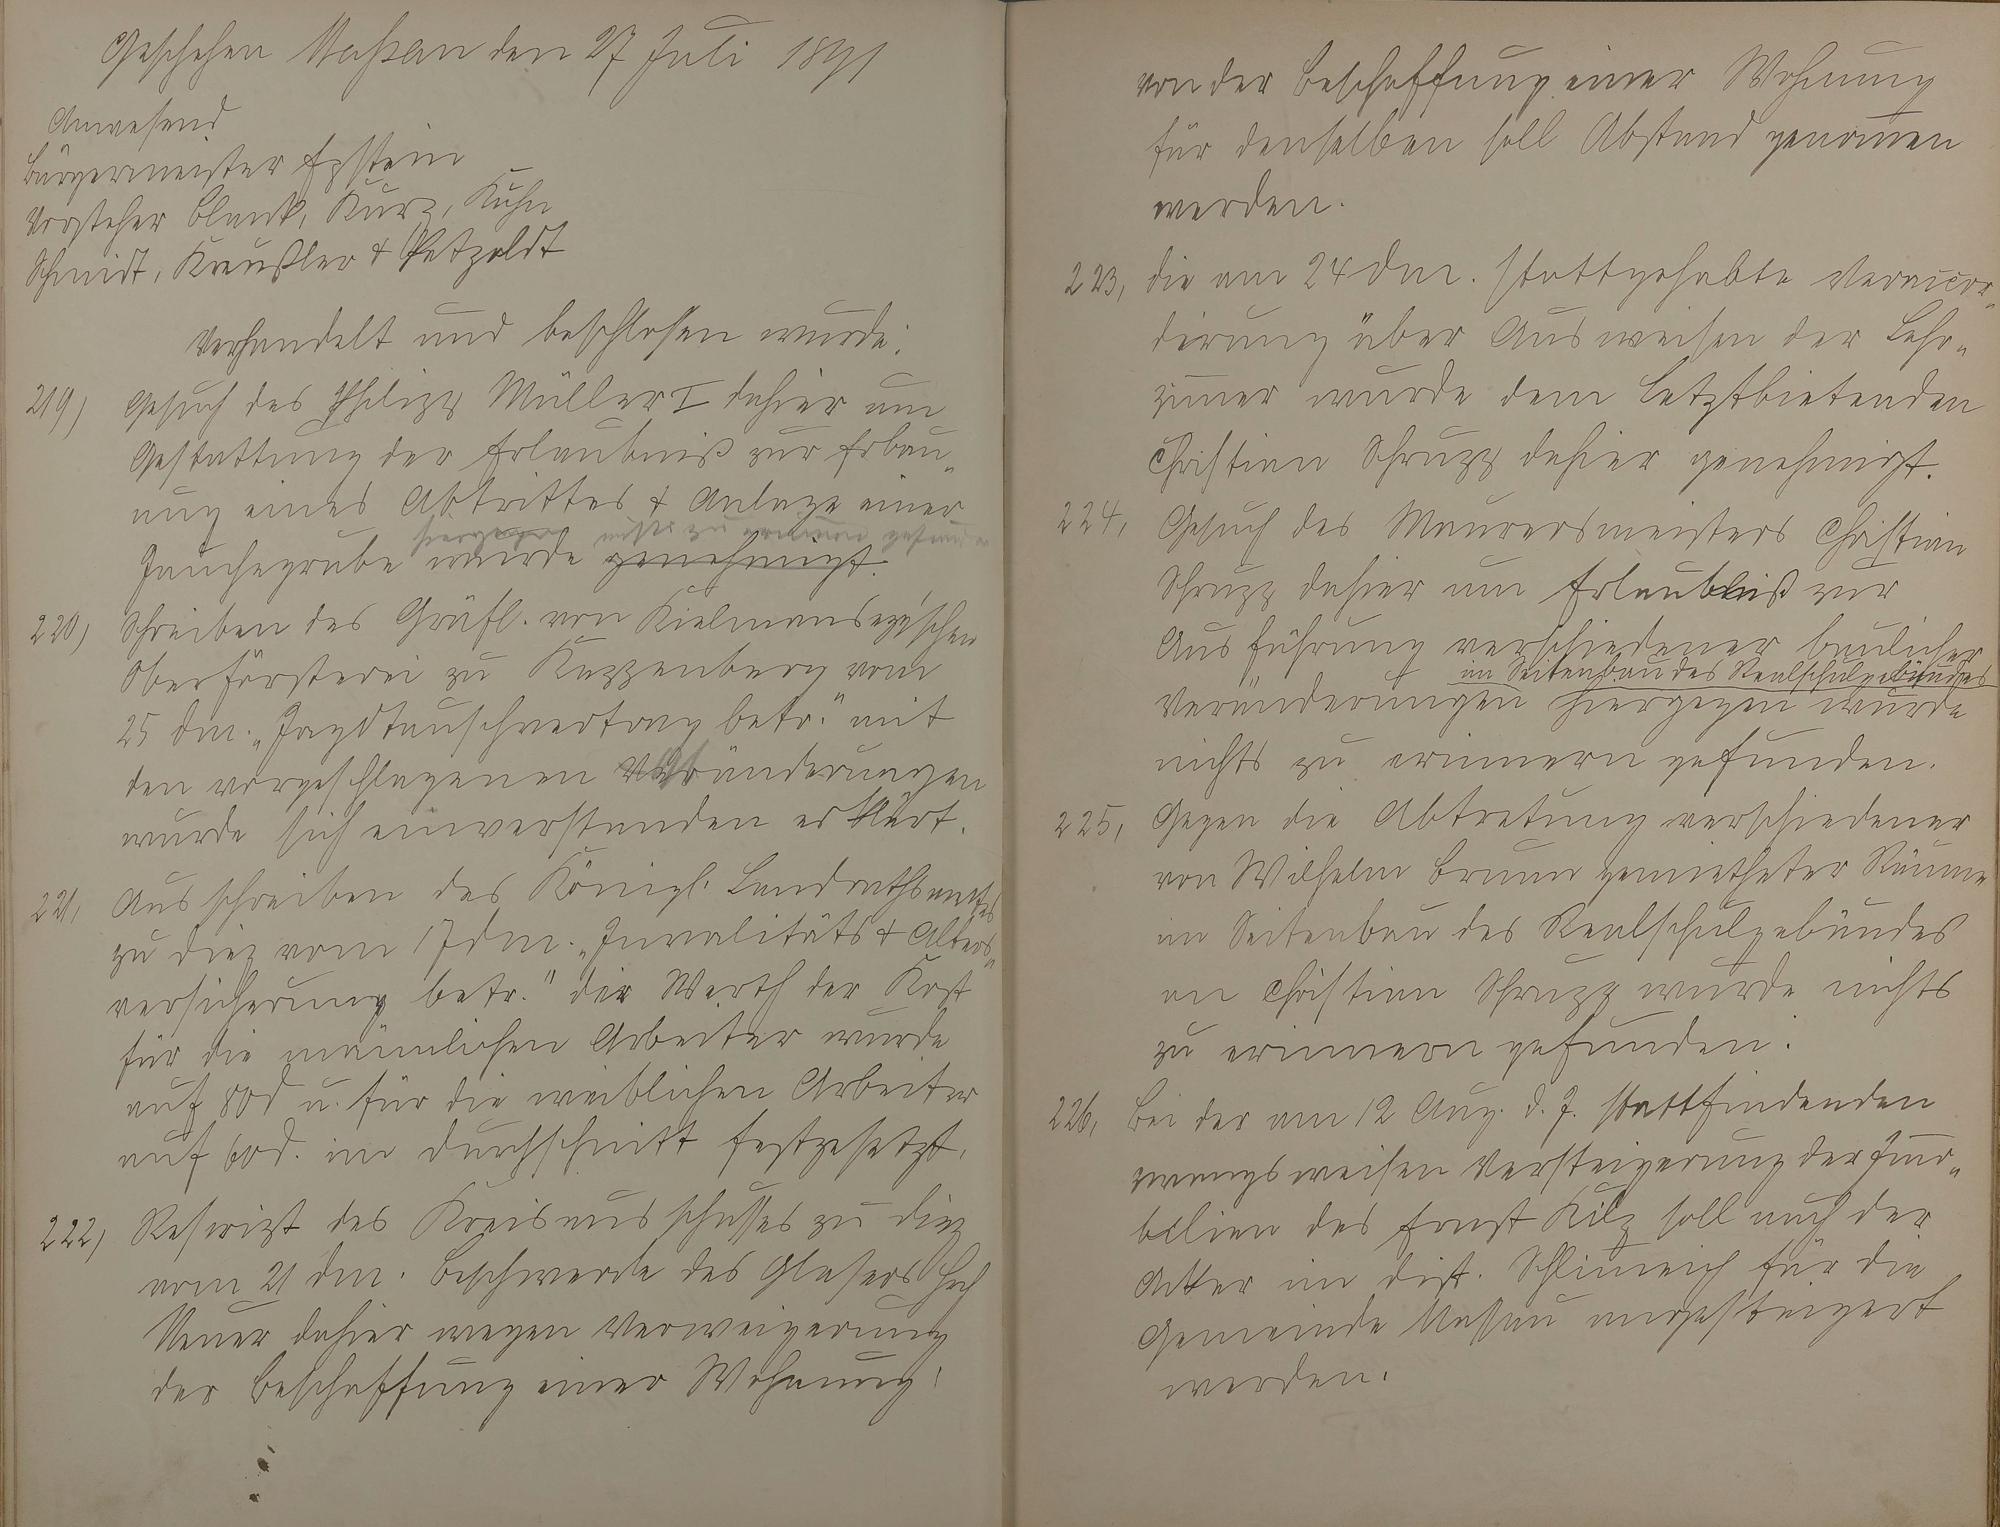 Geschehen Nassau den 27 Juli 1891
Anwesend
Bürgermeister Epstein
Vorsteher Blank, Kurz, Kuhn
Schmidt, Kreußler & Petzoldt
Verhandelt und beschlossen wurde:
219) Gesuch des Philipp Müller I dahier um
Gestattung der Erlaubniß zur Erbau„
ung eines Abtrittes & Anlage einer
hiergegen nichts zu erinnern gefunden
Jauchegrube wurde genehmigt.
220) Schreiben des Gräfl. von Kielmansegg'schen
Oberförsterei zu Kappenberg vom
25 dm. „Jagdtauschvertrag betr." mit
den vorgeschlagenen Veränderungen
wurde sich einverstanden erklärt.
221, Ausschreiben des Königl. Landrathsamtes
zu Diez vom 17 dm. „Invalitäts & Alters„
versicherung betr." der Werth der Kost
für die männlichen Arbeiter wurde
auf 80 d u. für die weiblichen Arbeiter
auf 60 d. im Durchschnitt festgesetzt.
222) Rescript des Kreisausschusses zu Diez
vom 21 dm. Beschwerde des Glasers
Neuer dahier wegen Verweigerung
der Beschaffung einer Wohnung:
von der Beschaffung einer Wohnung
für denselben soll Abstand genommen
werden.
223, die am 24 dm. stattgehabte Veraccor„
dirung über Ausweisen der Lehr„
zimmer wurde dem Letztbietenden
Christian Schrupp dahier genehmigt.
224, Gesuch des Maurersmeisters Christian
Schrupp dahier um Erlaubniß zur
Ausführung verschiedener baulicher
im Seitenbau des Realschulgebäudes
Veränderungen hiergegen wurde
nichts zu erinnern gefunden.
225, Gegen die Abtretung verschiedener
von Wilhelm Bruun gemietheter Räume
im Seitenbau des Realschulgebäudes
an Christian Schrupp wurde nichts
zu erinnern gefunden.
226, Bei der am 12 Aug. d. J. stattfindenden
zwangsweisen Versteigerung der Immo„
bilien des Ernst Kilz soll auch der
Acker im Dist. Schlimmeich für die
Gemeinde Nassau angesteigert
werden.